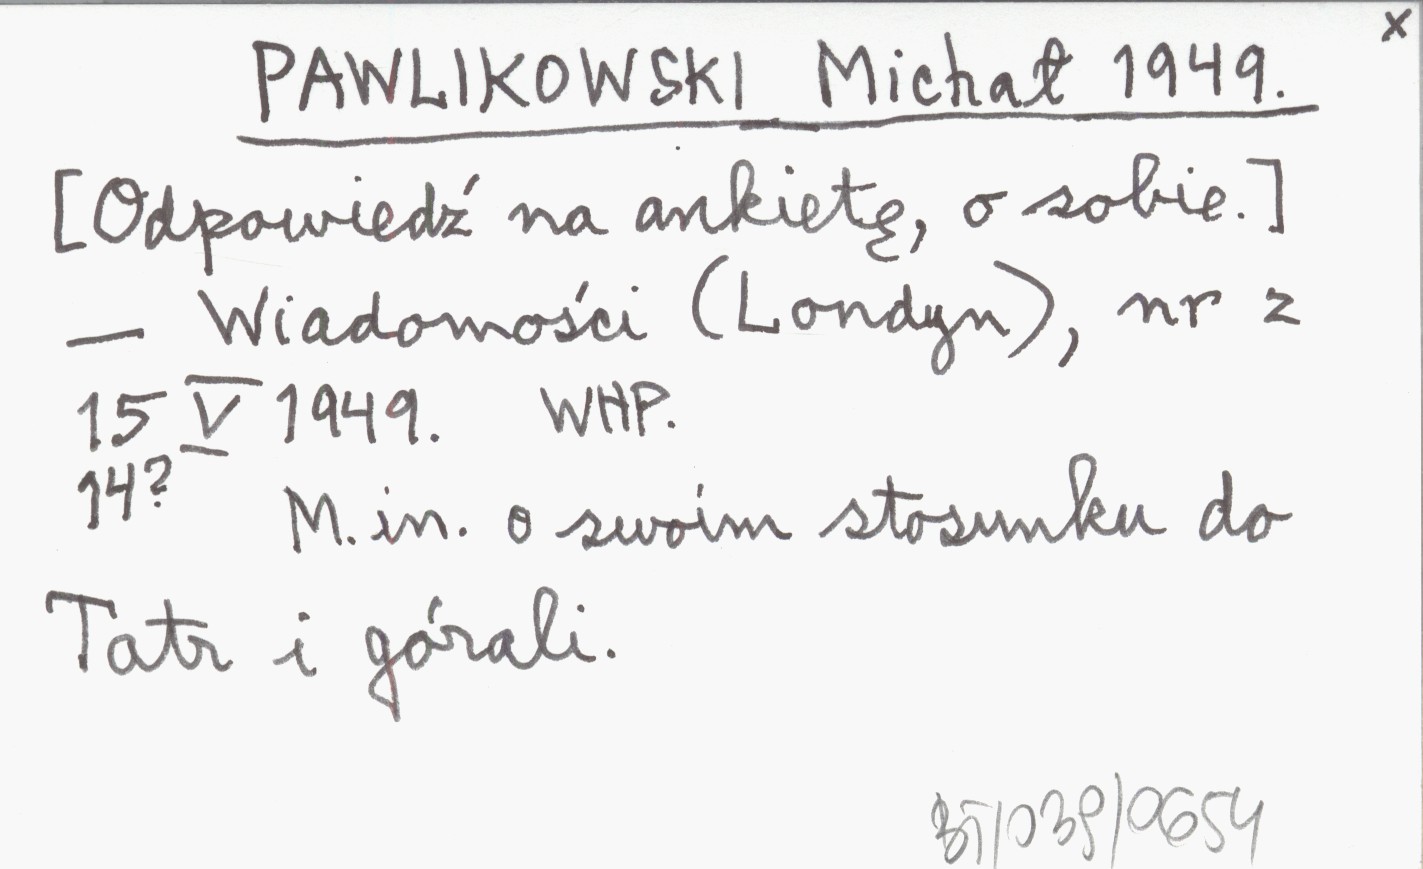 x
PAWLIKOWSKI Michał 1949.
[Odpowiedź na ankietę, o sobie.]
— Wiadomości (Londyn), nr z
15 V 1949. WHP.
14?
M.in. o swoim stosunku do
Tatr i górali.
BT/039/0654